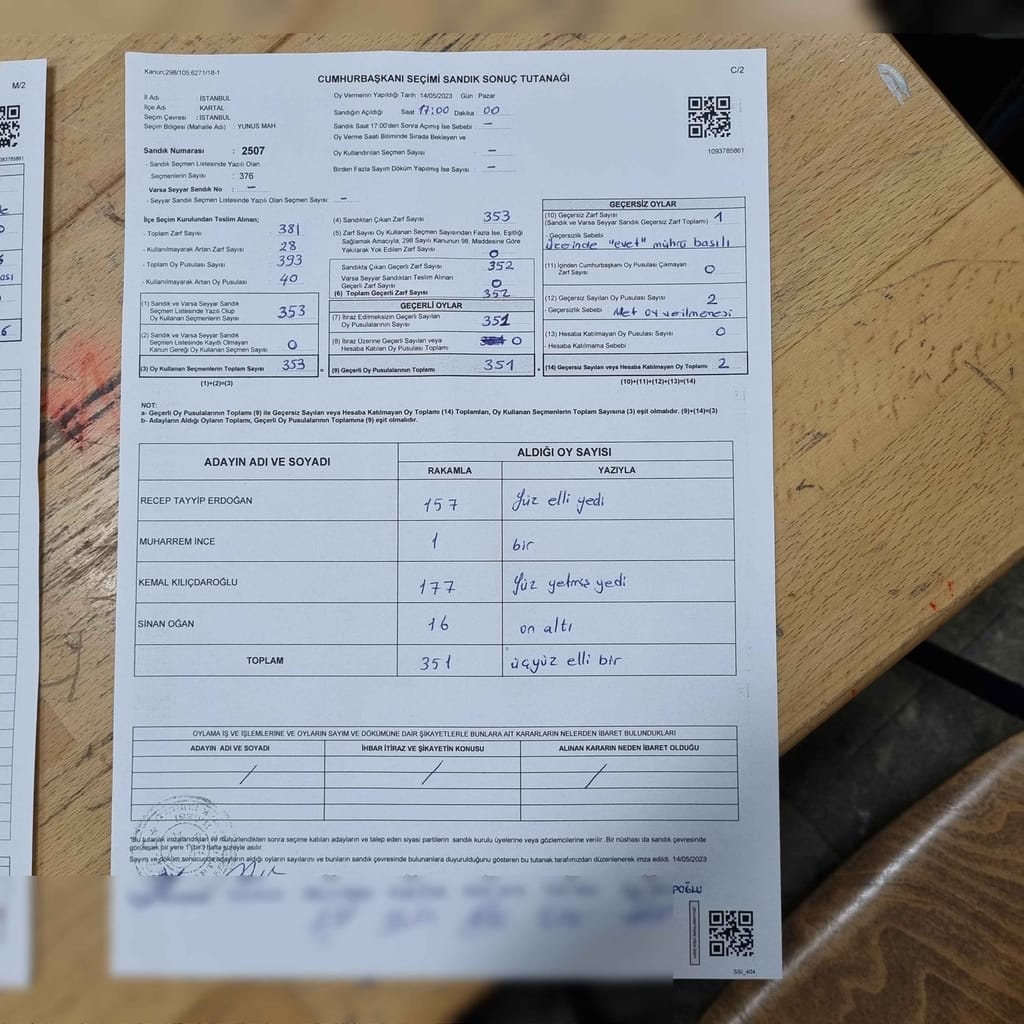 M/2
Kanun:298/105;6271/18-1
C/2
CUMHURBAŞKANI SEÇİMİ SANDIK SONUÇ TUTANAĞI
İl Adı : İSTANBUL
İlçe Adı : KARTAL
Seçim Çevresi : İSTANBUL
Seçim Bölgesi (Mahalle Adı) : YUNUS MAH.
Sandık Numarası : 2507
- Sandık Seçmen Listesinde Yazılı Olan
Seçmenlerin Sayısı : 376
Varsa Seyyar Sandık No : -
- Seyyar Sandık Seçmen Listesinde Yazılı Olan Seçmen Sayısı: -
Oy Vermenin Yapıldığı Tarih :14/05/2023 Gün : Pazar
Sandığın Açıldığı Saat 17:00 Dakika 00
Sandık Saat 17:00'den Sonra Açımış İse Sebebi : -
Oy Verme Saati Bitiminde Sırada Bekleyen ve
Oy Kullandırılan Seçmen Sayısı : -
Birden Fazla Sayım Döküm Yapılmış İse Sayısı : -
1093785861
İlçe Seçim Kurulundan Teslim Alınan;
- Toplam Zarf Sayısı 381
- Kullanılmayarak Artan Zarf Sayısı 28
- Toplam Oy Pusulası Sayısı 393
- Kullanılmayarak Artan Oy Pusulası 40
(1) Sandık ve Varsa Seyyar Sandık
Seçmen Listesinde Yazılı Olup
Oy Kullanan Seçmenlerin Sayısı 353
(2) Sandık ve Varsa Seyyar Sandık
Seçmen Listesinde Kayıtlı Olmayan
Kanun Gereği Oy Kullanan Seçmen Sayısı 0
(3) Oy Kullanan Seçmenlerin Toplam Sayısı 353
(1)+(2)=(3)
(4) Sandıktan Çıkan Zarf Sayısı 353
(5) Zarf Sayısı Oy Kullanan Seçmen Sayısından Fazla İse, Eşitliği
Sağlamak Amacıyla, 298 Sayılı Kanunun 98. Maddesine Göre
Yakılarak Yok Edilen Zarf Sayısı 0
Sandıkta Çıkan Geçerli Zarf Sayısı 352
Varsa Seyyar Sandıktan Teslim Alınan
Geçerli Zarf Sayısı 0
(6) Toplam Geçerli Zarf Sayısı 352
GEÇERLİ OYLAR
(7) İtiraz Edilmeksizin Geçerli Sayılan
Oy Pusulalarının Sayısı 351
(8) İtiraz Üzerine Geçerli Sayılan veya
Hesaba Katılan Oy Pusulası Toplamı 0
(9) Geçerli Oy Pusulalarının Toplamı 351
GEÇERSİZ OYLAR
(10) Geçersiz Zarf Sayısı 1
(Sandık ve Varsa Seyyar Sandık Geçersiz Zarf Toplamı)
- Geçersizlik Sebebi
üzerinde "evet" mührü basılı
(11) İçinden Cumhurbaşkanı Oy Pusulası Çıkmayan
Zarf Sayısı 0
(12) Geçersiz Sayılan Oy Pusulası Sayısı 2
- Geçersizlik Sebebi : Net oy verilmemesi
(13) Hesaba Katılmayan Oy Pusulası Sayısı 0
- Hesaba Katılmama Sebebi :
(14) Geçersiz Sayılan veya Hesaba Katılmayan Oy Toplamı 2
(10)+(11)+(12)+(13)=(14)
NOT:
a- Geçerli Oy Pusulalarının Toplamı (9) ile Geçersiz Sayılan veya Hesaba Katılmayan Oy Toplamı (14) Toplamları, Oy Kullanan Seçmenlerin Toplam Sayısına (3) eşit olmalıdır. (9)+(14)=(3)
b- Adayların Aldığı Oyların Toplamı, Geçerli Oy Pusulalarının Toplamına (9) eşit olmalıdır.
ADAYIN ADI VE SOYADI
ALDIĞI OY SAYISI
RAKAMLA YAZIYLA
RECEP TAYYİP ERDOĞAN 157 Yüz elli yedi
MUHARREM İNCE 1 bir
KEMAL KILIÇDAROĞLU 177 Yüz yetmiş yedi
SİNAN OĞAN 16 on altı
TOPLAM 351 üçyüz elli bir
OYLAMA İŞ VE İŞLEMLERİNE VE OYLARIN SAYIM VE DÖKÜMÜNE DAİR ŞİKAYETLERLE BUNLARA AİT KARARLARIN NELERDEN İBARET BULUNDUKLARI
ADAYIN ADI VE SOYADI İHBAR İTİRAZ VE ŞİKAYETİN KONUSU ALINAN KARARIN NEDEN İBARET OLDUĞU
/ / /
"Bu tutanak imzalandıktan ve mühürlendikten sonra seçime katılan adayların ve talep eden siyasi partilerin sandık kurulu üyelerine veya gözlemcilerine verilir. Bir nüshası da sandık çevresinde
görülecek bir yere 1 (bir) hafta süreyle asılır.
Sayım ve döküm sonucunda adayların aldığı oyların sayılarını ve bunların sandık çevresinde bulunanlara duyurulduğunu gösteren bu tutanak tarafımızdan düzenlenerek imza edildi. 14/05/2023
POĞLU
SSI_404